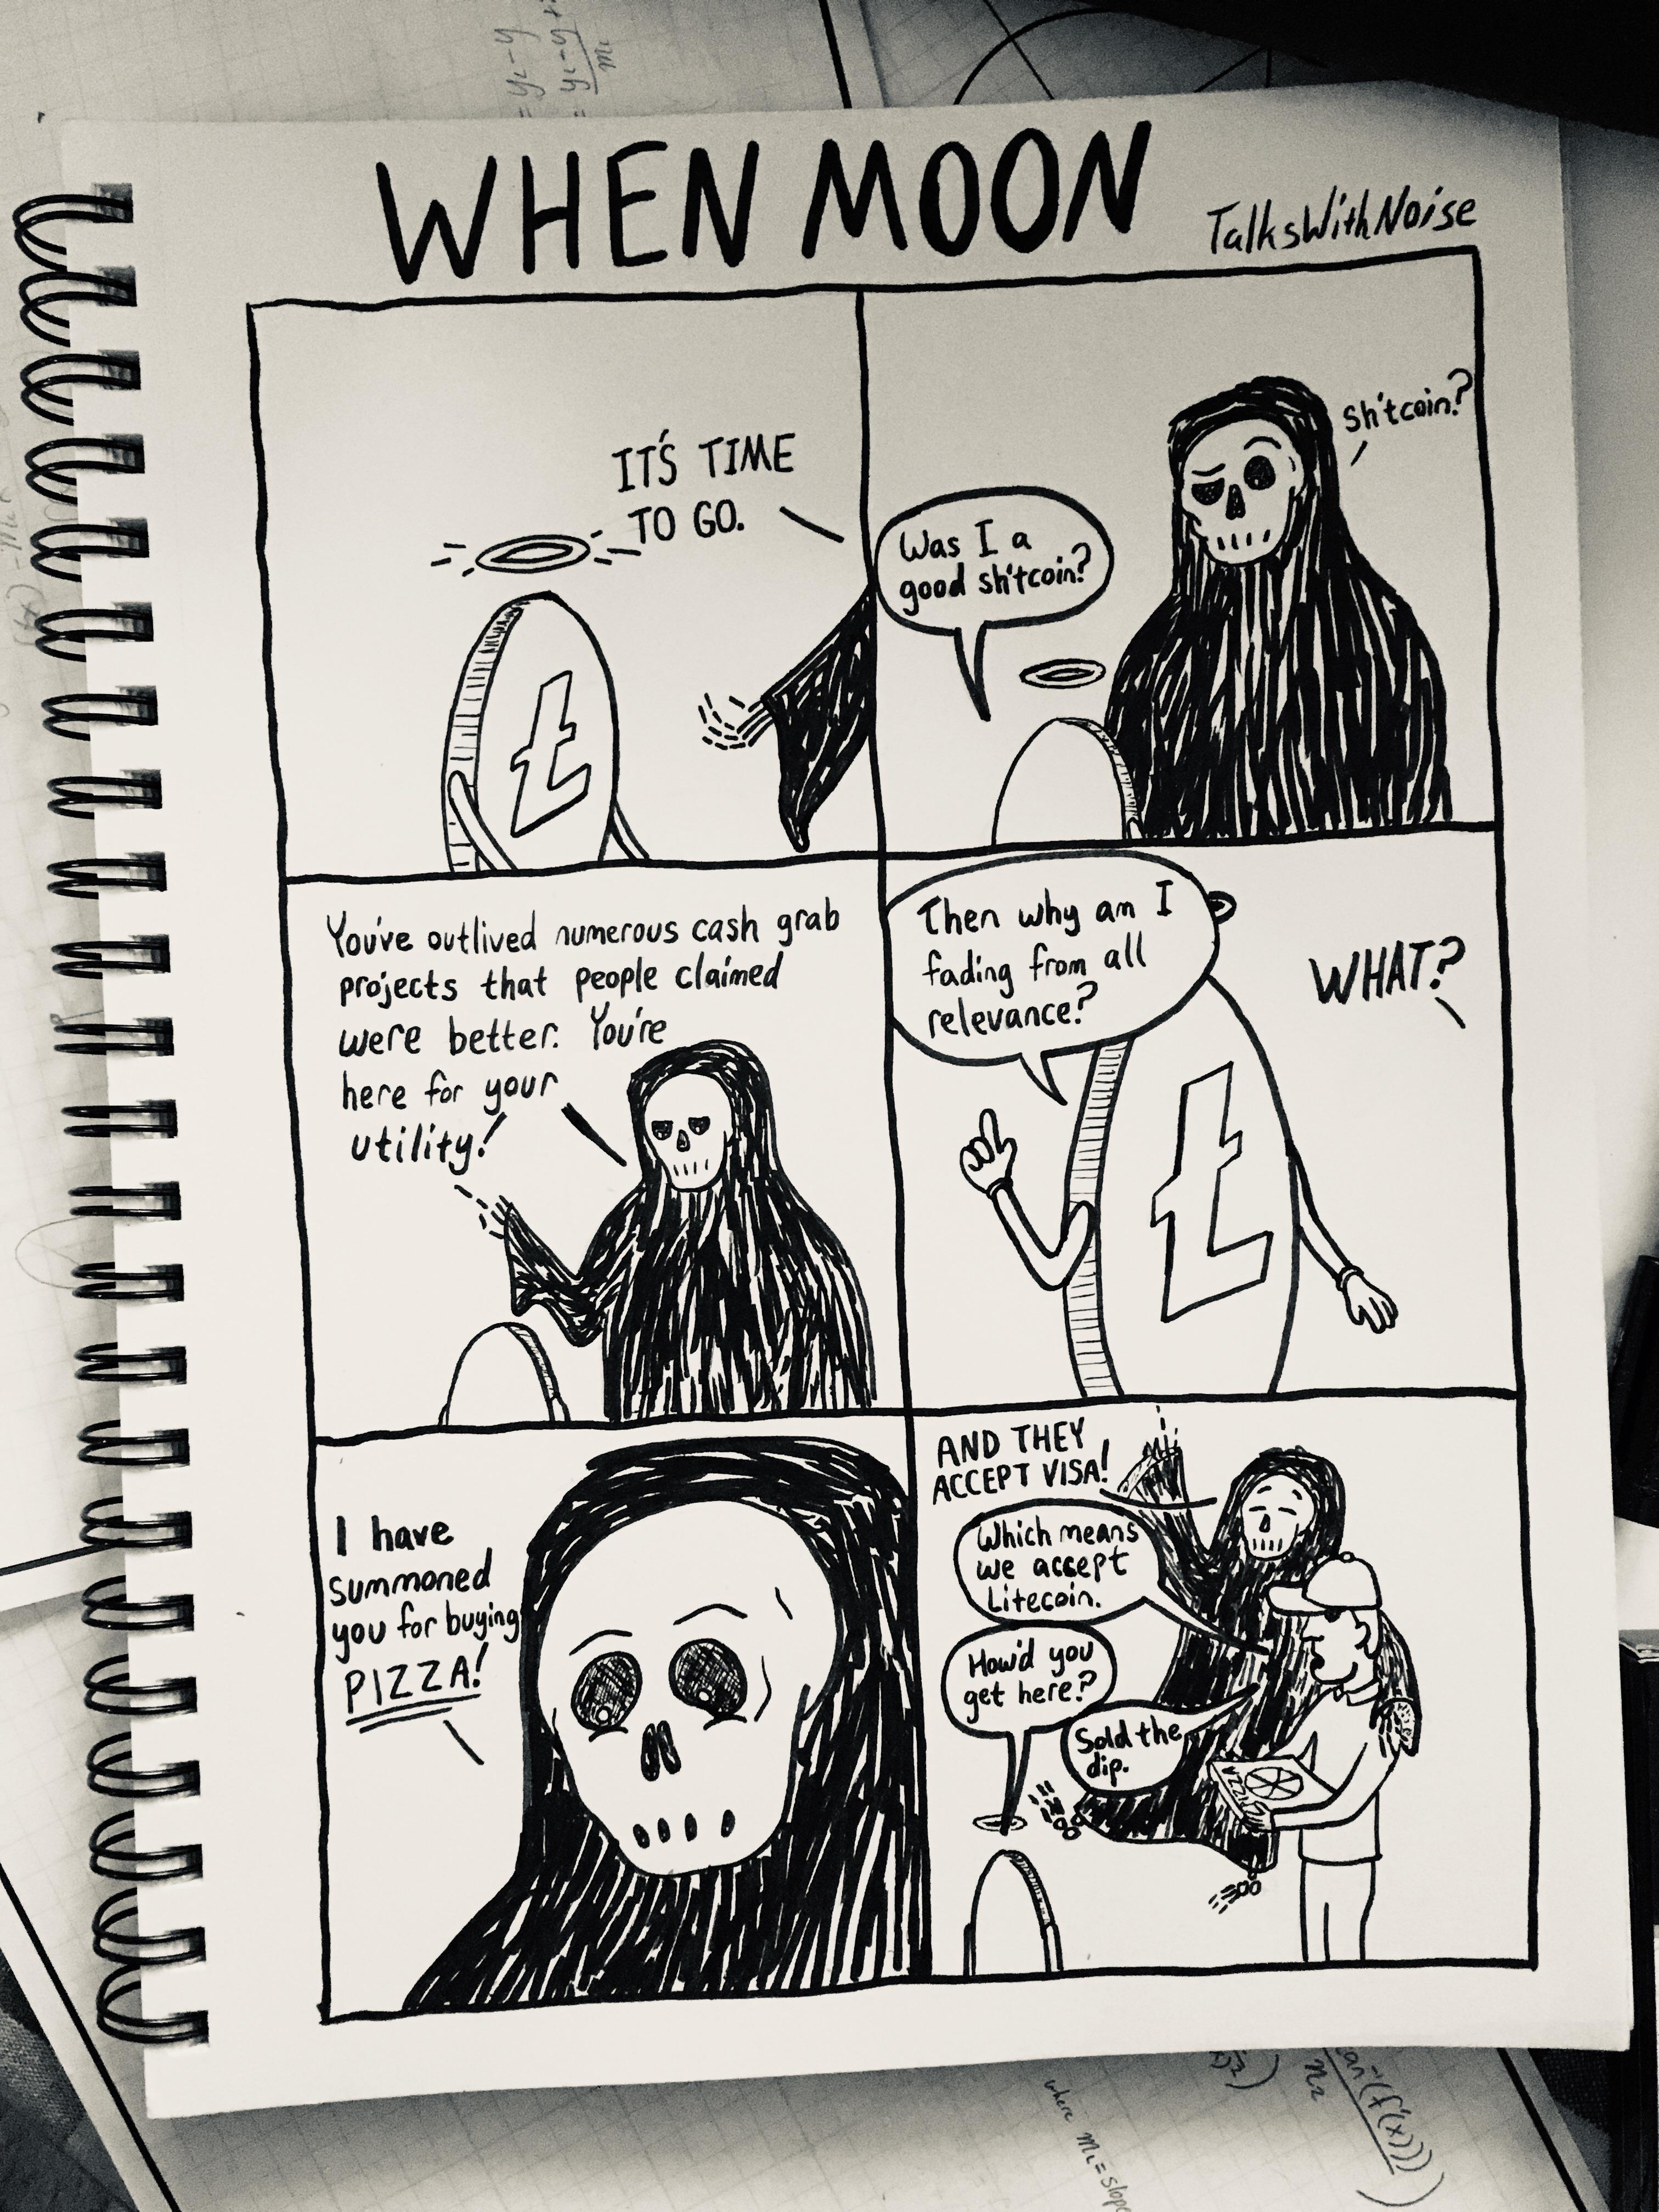 = y2-y
y2-y
m
WHEN MOON
TalksWithNoise
IT'S TIME
TO GO.
Ł
Was I a
good sh'tcoin?
Sh'tcoin?
You've outlived numerous cash grab
projects that people claimed
were better. You're
here for your
utility!
Then why am I
fading from all
relevance?
WHAT?
Ł
I have
summoned
you for buying
PIZZA!
AND THEY
ACCEPT VISA!
Which means
we accept
Litecoin.
How'd you
get here?
Sold the
dip.
PIZZA
where m = slope